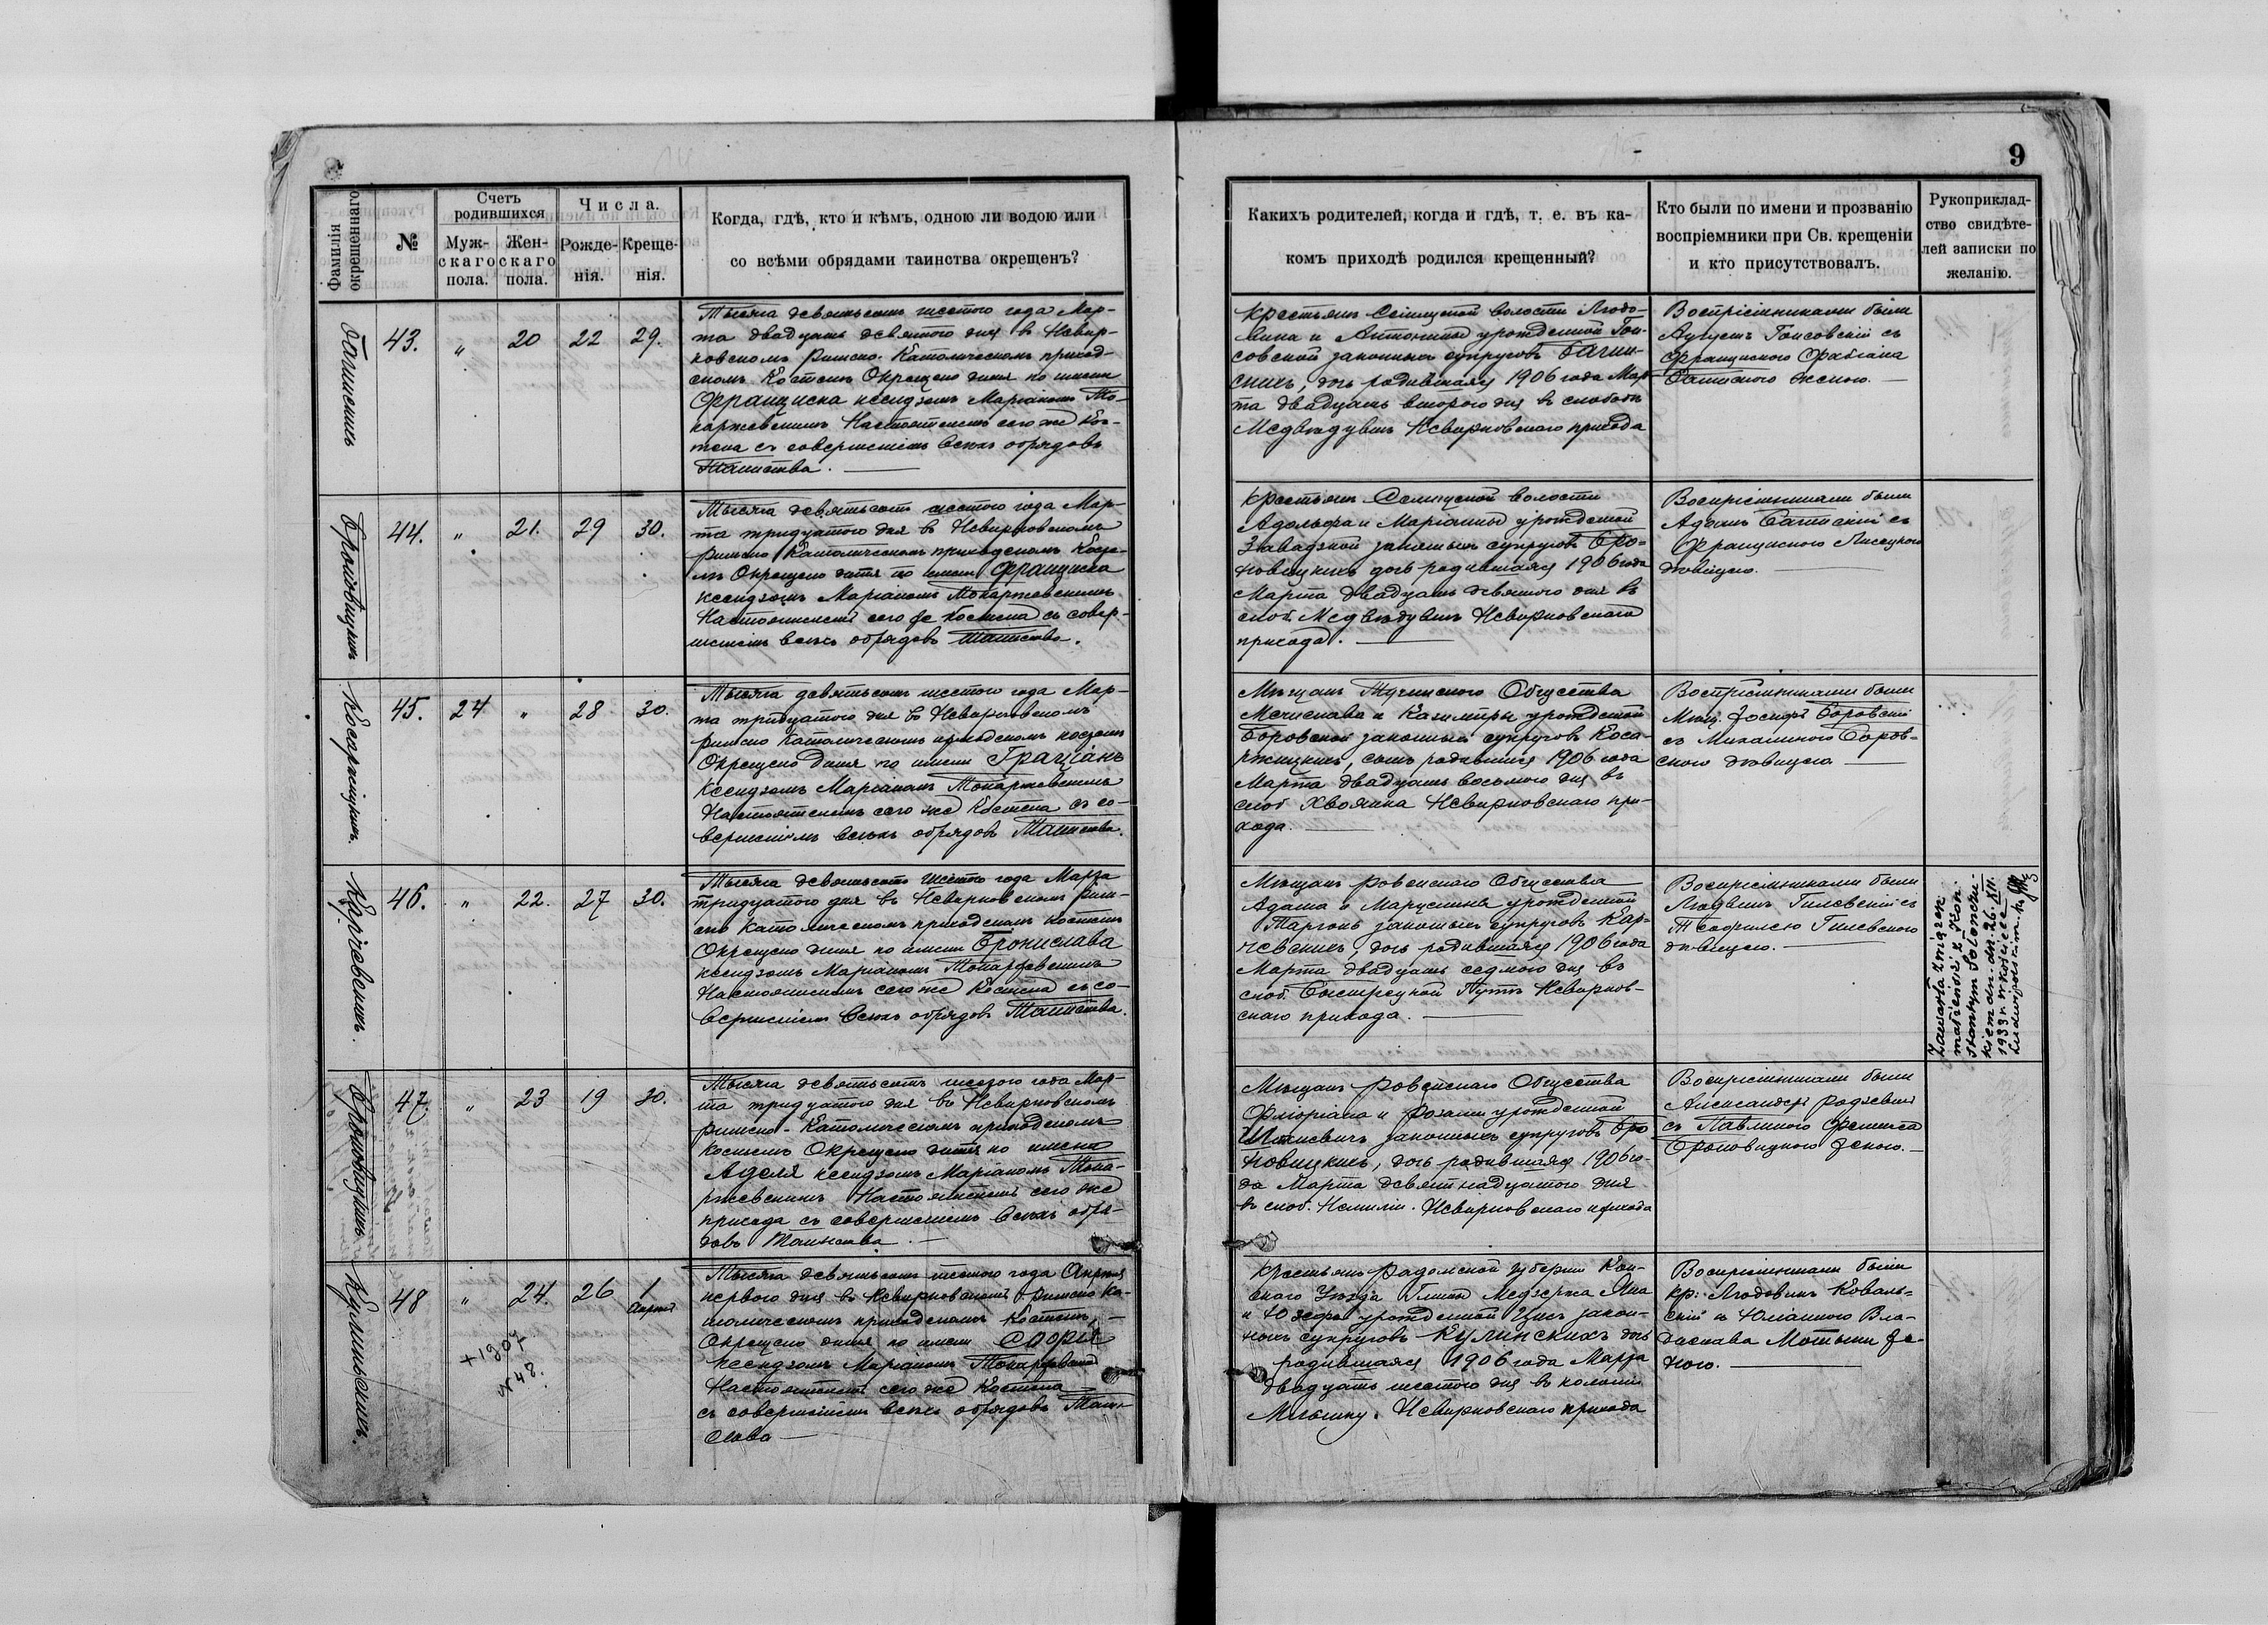 9
Фамилія окрещеннаго
№
Счетъ родившихся
Муж-
скаго
пола.
Жен-
скаго
пола.
Числа.
Рожде-
нія.
Креще-
нія.
Когда, гдѣ, кто и кѣмъ, одною ли водою или
со всѣми обрядами таинства окрещенъ?
Какихъ родителей, когда и гдѣ, т. е. въ ка-
комъ приходѣ родился крещенный?
Кто были по имени и прозванію
воспріемники при Св. крещеніи
и кто присутствовалъ.
Рукоприклад-
ство свидѣте-
лей записки по
желанію.
43. " 20 22 29.
Тысяча девятьсотъ шестого года Мар-
та двадцать девятого дня в Невир-
ковскомъ Римско-Католическомъ приход-
скомъ Костелѣ Окрещено дитя по имени
Франциска ксендзомъ Маріаномъ То-
каржевскимъ Настоятелемъ сего же Кос-
тела съ совершеніемъ всѣхъ обрядовъ
Таинства.
Крестьянъ волости Людо-
вика и Антонины урожденной Гон-
совской законныхъ супруговъ
дочь родившаяся 1906 года Мар-
та двадцать второго дня в слободѣ
Невирковскаго прихода
Воспріемниками были
Августъ Гонсовскій съ
Францискою Фабіана
женою.
44. " 21. 29 30.
Тысяча девятьсотъ шестого года Мар-
та тридцатого дня в Невирковскомъ
римско Католическомъ приходскомъ Косте-
лѣ Окрещено дитя по имени Франциска
ксендзомъ Маріаномъ Токаржевскимъ
Настоятелемъ сего же Костела съ совер-
шеніемъ всѣхъ обрядовъ Таинства.
Крестьянъ волости
Адольфа и Маріанны урожденной
Завадзкой законныхъ супруговъ Бро-
новицкихъ дочь родившаяся 1906 года
Марта двадцать девятого дня в
слоб. Невирковскаго
прихода.
Воспріемниками были
Адамъ съ
Францискою
дѣвицею.
45. 24 " 28 30.
Тысяча девятьсотъ шестого года Мар-
та тридцатого дня во Невирковскомъ
римско католическомъ приходскомъ костелѣ
Окрещено Дитя по имени Граціанъ
Ксендзомъ Маріаномъ Токаржевскимъ
Настоятелемъ сего же Костела съ со-
вершеніемъ всѣхъ обрядовъ Таинства.
Мѣщанъ Тучинского Общества
Мечислава и Казимиры урожденной
Боровской законныхъ супруговъ Коса-
ржицкихъ, сынъ родившійся 1906 года
Марта двадцать восьмого дня въ
слоб Хвоянка Невирковскаго при-
хода.
Воспріемниками были
Мѣщ. Іосифъ Боровскій
съ Михалиною Боров-
скою дѣвицею
46. " 22. 27 30.
Тысяча девятьсотъ шестого года Марта
тридцатого дня въ Невирковскомъ Рим-
ско Католическомъ приходскомъ костелѣ
Окрещено дитя по имени Бронислава
ксендзомъ Маріаномъ Токаржевскимъ
Настоятелемъ сего же Костела съ со-
вершеніемъ всѣхъ обрядовъ Таинства.
Мѣщанъ ровенскаго Общества
Адама и урожденной
законныхъ супруговъ Кар-
чевскихъ, дочь родившаяся 1906 года
Марта двадцать седмого дня въ
слоб. Невирков-
скаго прихода.
Воспріемниками были
Людвикъ Гилевскій съ
Теофилею Гилевскою
дѣвицею.
Zawarła związek
małżeński z Kon-
stantym Solonchu-
kiem dn. 26. XII.
1933 r. w kościele
Ludwipolskim.
47. " 23 19 30.
Тысяча девятьсотъ шестого года Мар-
та тридцатого дня во Невирковскомъ
римско-Католическомъ приходскомъ
Костелѣ Окрещено дитя по имени
Аделя ксендзомъ Маріаномъ Тока-
ржевскимъ Настоятелемъ сего же
прихода съ совершеніемъ всѣхъ обря-
довъ Таинства.
Мѣщанъ ровенскаго Общества
Флоріана и Розаліи урожденной
законныхъ супруговъ Бро
новицкихъ, дочь родившаяся 1906 го-
да Марта девятнадцатого дня
в слоб. Невирковскаго прихода
Воспріемниками были
Александръ
съ Павлиною Феликса
Броновицкого женою.
48 " 24. 26 1 Апрѣля
+ 1907
N 48.
Тысяча девятьсотъ шестого года Апрѣля
первого дня въ Невирковскомъ Римско Ка-
толическомъ приходскомъ Костелѣ
Окрещено дитя по имени Софія
ксендзомъ Маріаномъ Токаржевскимъ
Настоятелемъ сего же Костела
съ совершеніемъ всѣхъ обрядовъ Таин-
ства
Крестьянъ Радомской губерніи Кон-
ского Уѣзда Гмины Яна
и Юзефы урожденной закон-
ныхъ супруговъ Кулинскихъ дочь
родившаяся 1906 года Марта
двадцать шестого дня въ колоніи
Невирковскаго прихода
Воспріемниками были
кр: Людовикъ Коваль-
скій и Юліанною Вла-
дислава же-
ною.
Косаржицкихъ.
Карчевскихъ.
Броновицкихъ
Кулинскихъ.